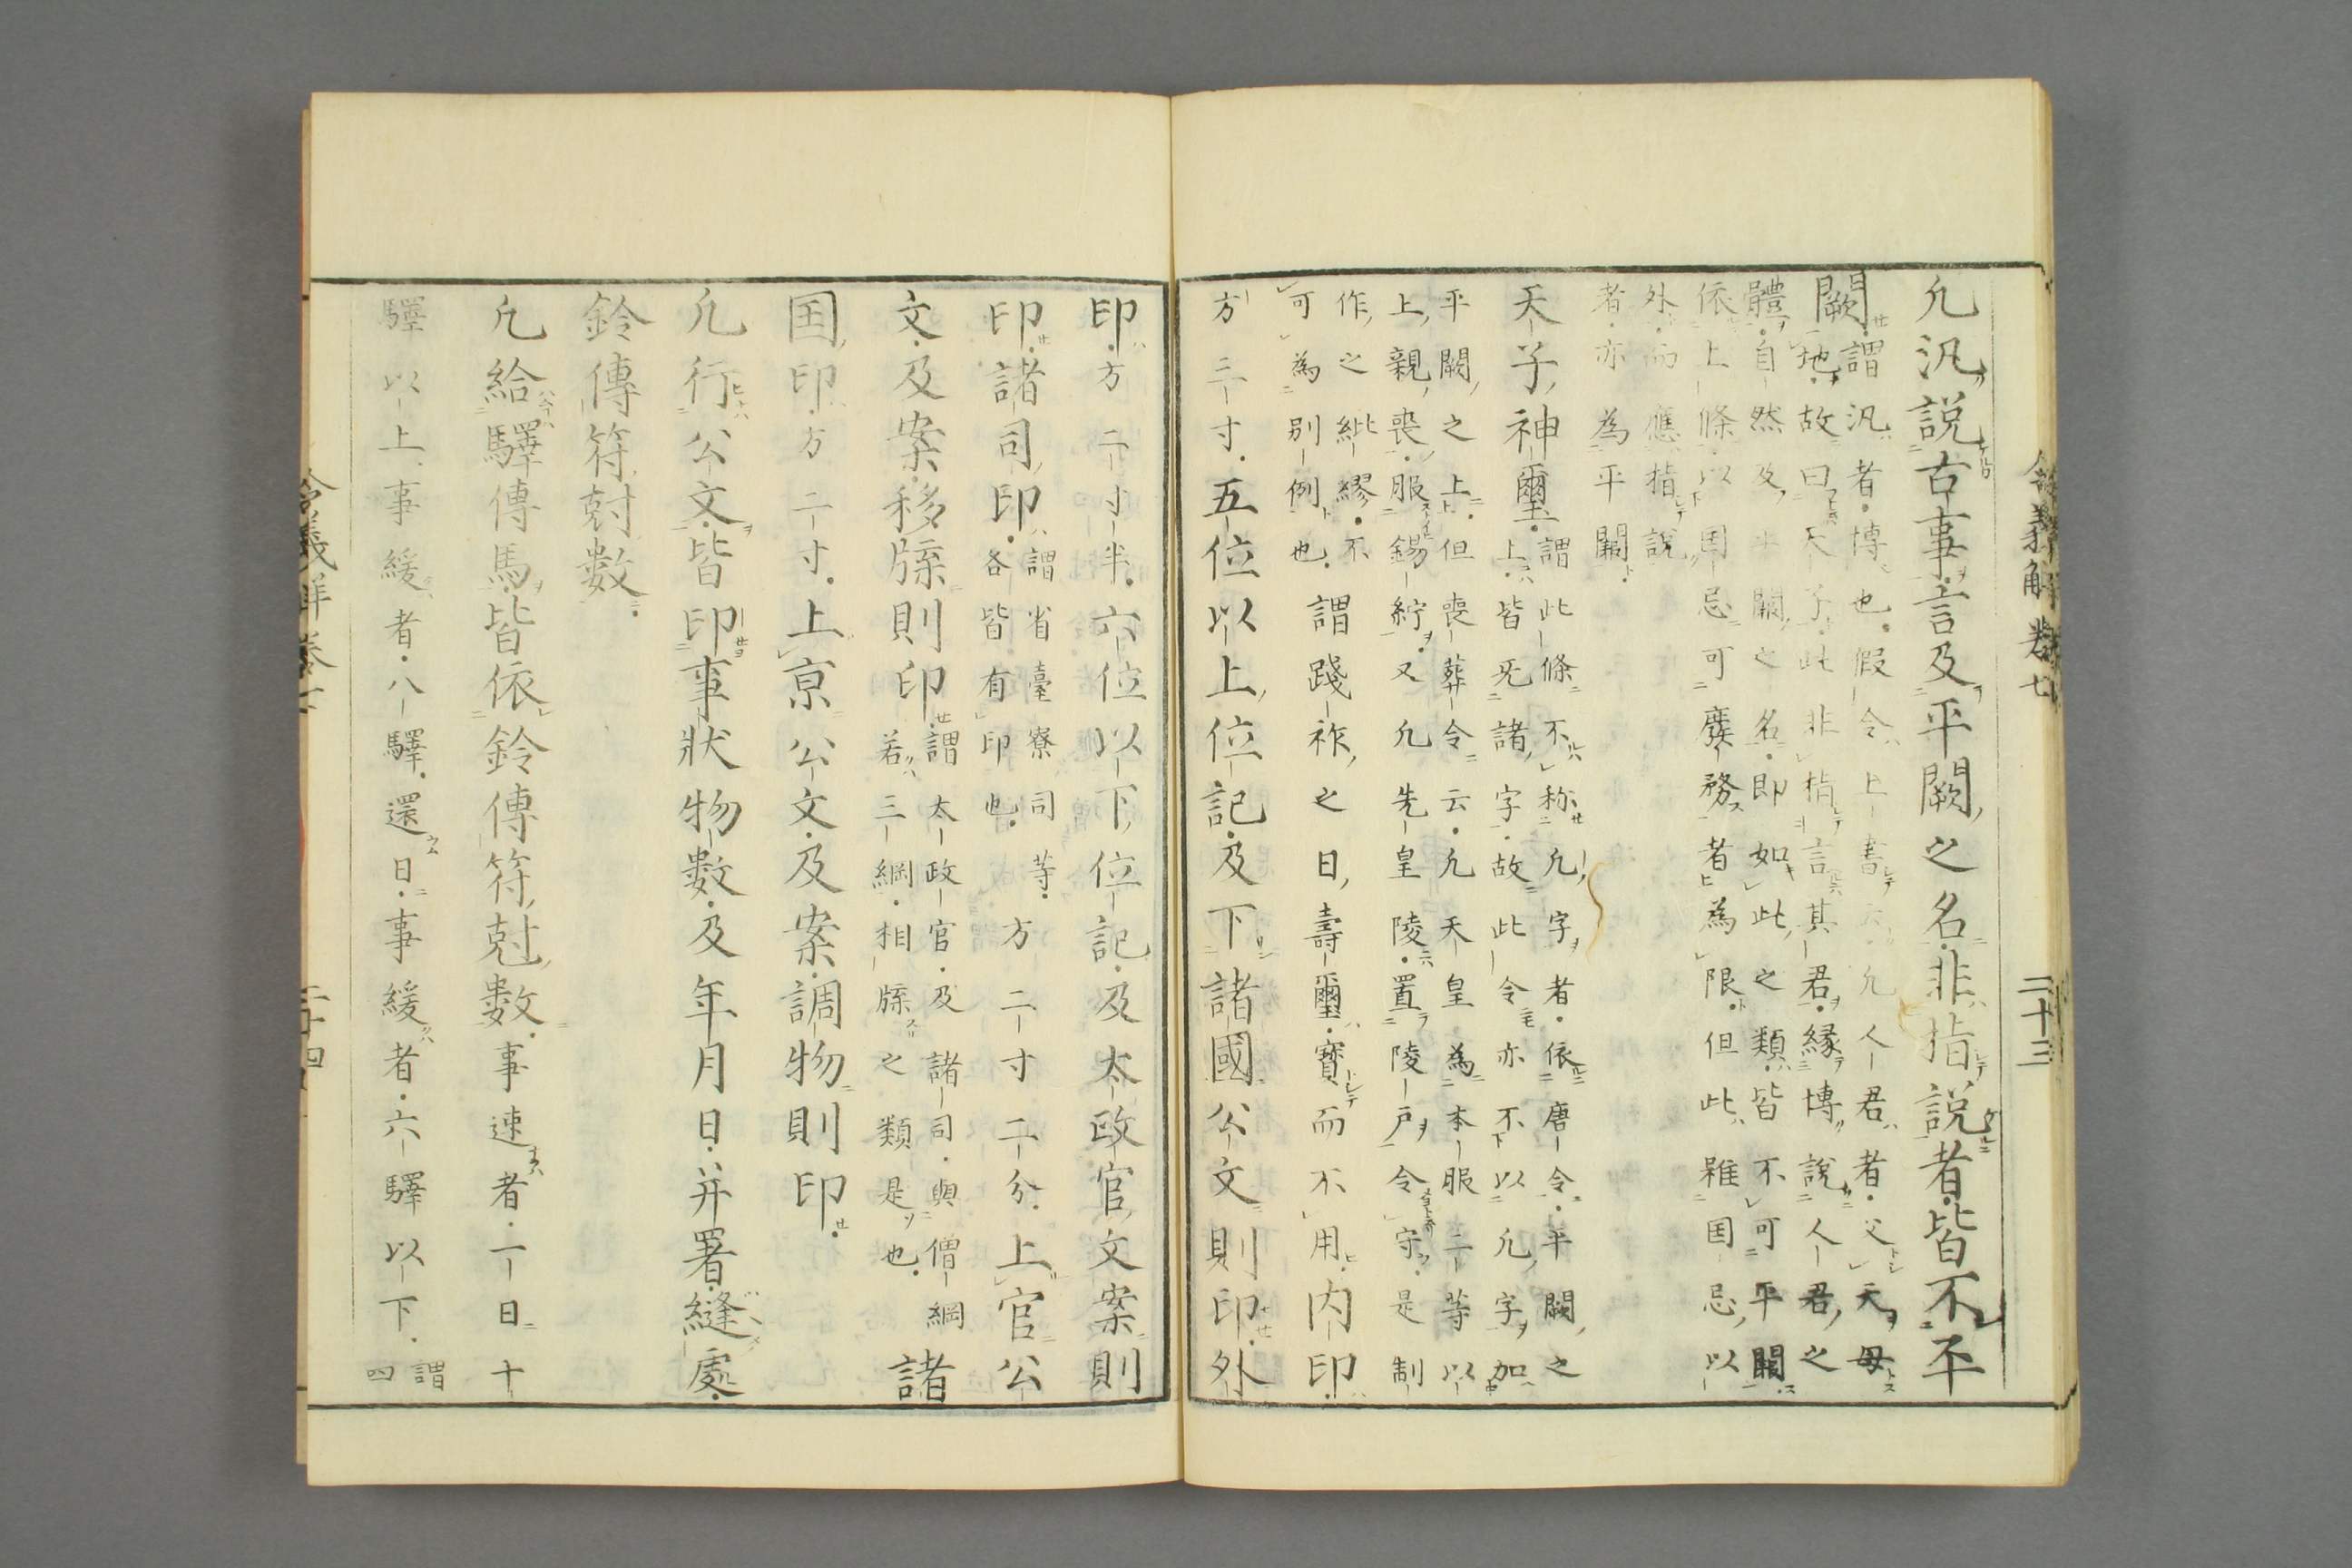 令義解卷七
二十三
凢汎說古事言及平闕之名非指說者皆不平
闕
謂汎者博也假令上書云凢人君者父天母
地故曰天子此非指言其君縁博說人君之
體自然及平闕之名即如此之類皆不可平闕
依上條以国忌可廢務者為限但此雖国忌以
外而應指說
者亦為平闕
天子神璽
謂此條不称凢字者依唐令平闕之
上皆旡諸字故此令亦不以凢字加
平闕之上但喪葬令云凢天皇為本服二等以
上親喪服錫紵又凢先皇陵置陵戶令守是制
作之紕繆不
可為别例也
謂踐祚之日壽璽寶而不用内印
方三寸五位以上位記及下諸國公文則印外
印方二寸半六位以下位記及太政官文案則
印諸司印
謂省臺寮司等
各皆有印也
方二寸二分上官公
文及案移牒則印
謂太政官及諸司與僧綱
若三綱相牒之類是也
諸
国印方二寸上亰公文及案調物則印
凢行公文皆印事狀物數及年月日并署縫處
鈴傳符尅數
凢給驛傳馬皆依鈴傳符尅數事速者一日十
驛以上事緩者八驛還日事緩者六驛以下
謂
四
令義解卷七
二十四